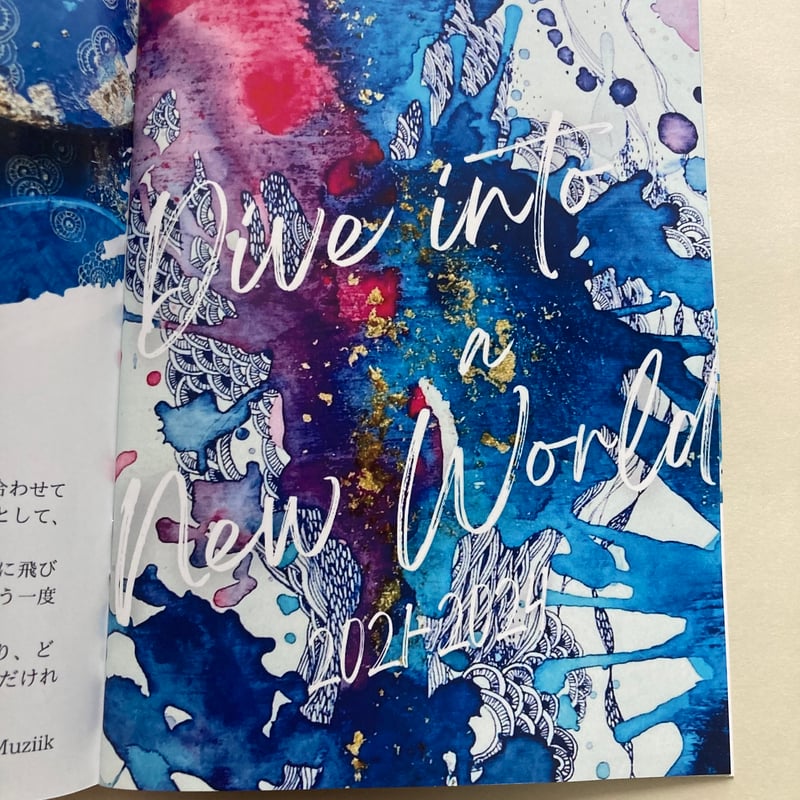 合わせて
として、
に飛び
う一度
り、ど
だけれ
Muziik
Dive into
a
New World
2021-2024